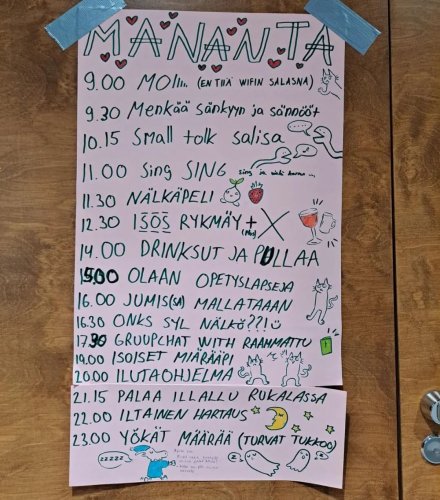 MANANTA
9.00 MOI.... (EN TIIÄ WIFIN SALASNA)
9.30 Menkää sänkyyn ja sännööt
10.15 Small tolk salisa
11.00 Sing SING sing ja vielä kerran ...
11.30 NÄLKÄPELI
12.30 ISÖÖS RYKMÄY + X
14.00 DRINKSUT JA PULLAA
15.00 OLAAN OPETYSLAPSEJA
16.00 JUMIS(SA) MALLATAAAN
16.30 ONKS SYL NÄLKÖ??!!
17.30 GRUUPCHAT WITH RAAHMATTU
19.00 ISOISET MIÄRÄÄPI
20.00 ILUTAOHJELMA
21.15 PALAA ILLALLU RUKALASSA
22.00 ILTAINEN HARTAUS
23.00 YÖKÄT MÄÄRÄÄ (TURVAT TUKKOO)
ZZZZZ